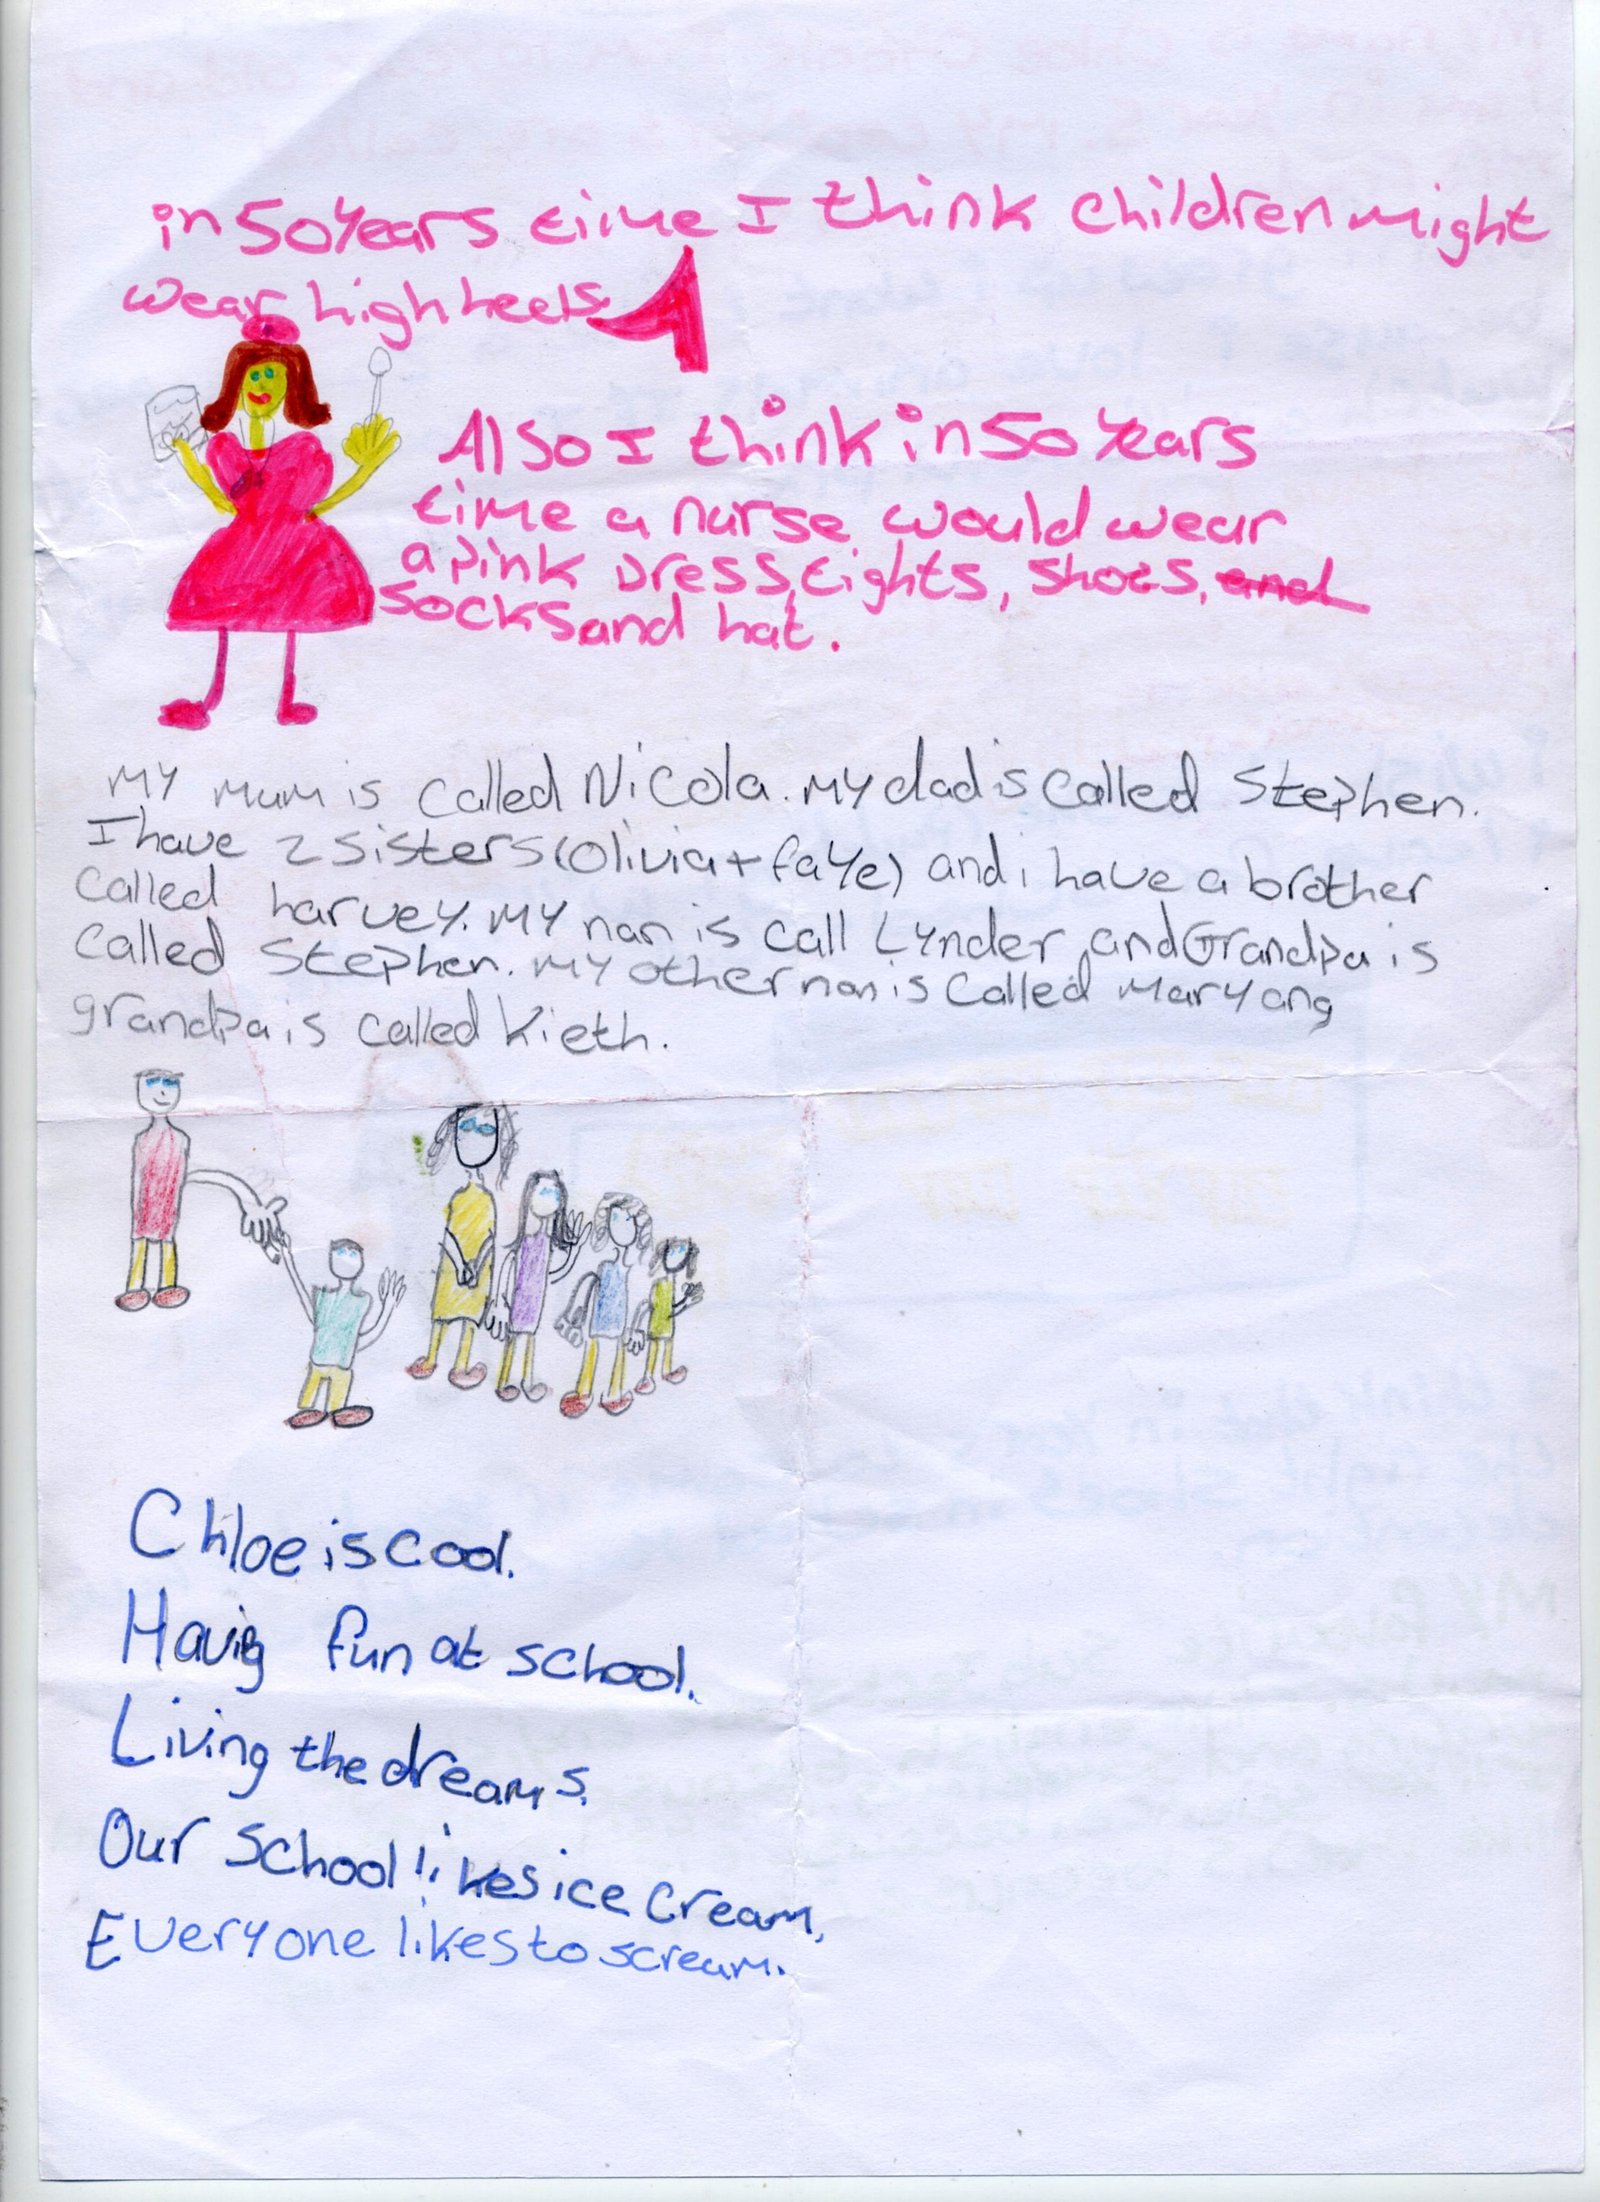 in 50 Years time I think children might
wear high heels
Also I think in 50 Years
time a nurse would wear
a pink Dress, tights, shoes, and
socks and hat.
MY mum is called Nicola. MY dad is called Stephen.
I have 2 sisters (Olivia + faYe) and i have a brother
called harvey. MY nan is call Lynder and Grandpa is
called Stephen. MY other nan is called Mary ang
grandpa is called Kieth.
Chloe is cool.
Havig fun at school.
Living the dreams.
Our school likes ice cream,
Everyone likes to scream.